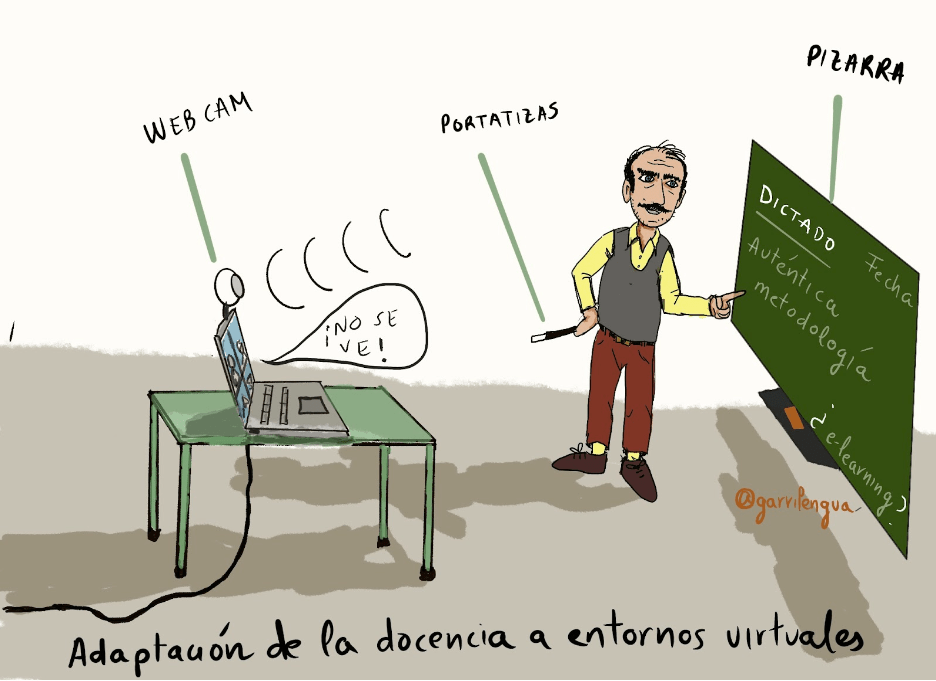 PIZARRA
WEBCAM
PORTATIZAS
DICTADO
Fecha
Auténtica
metodología
¿e-learning?
¡NO SE
VE!
@garrilengua
Adaptación de la docencia a entornos virtuales